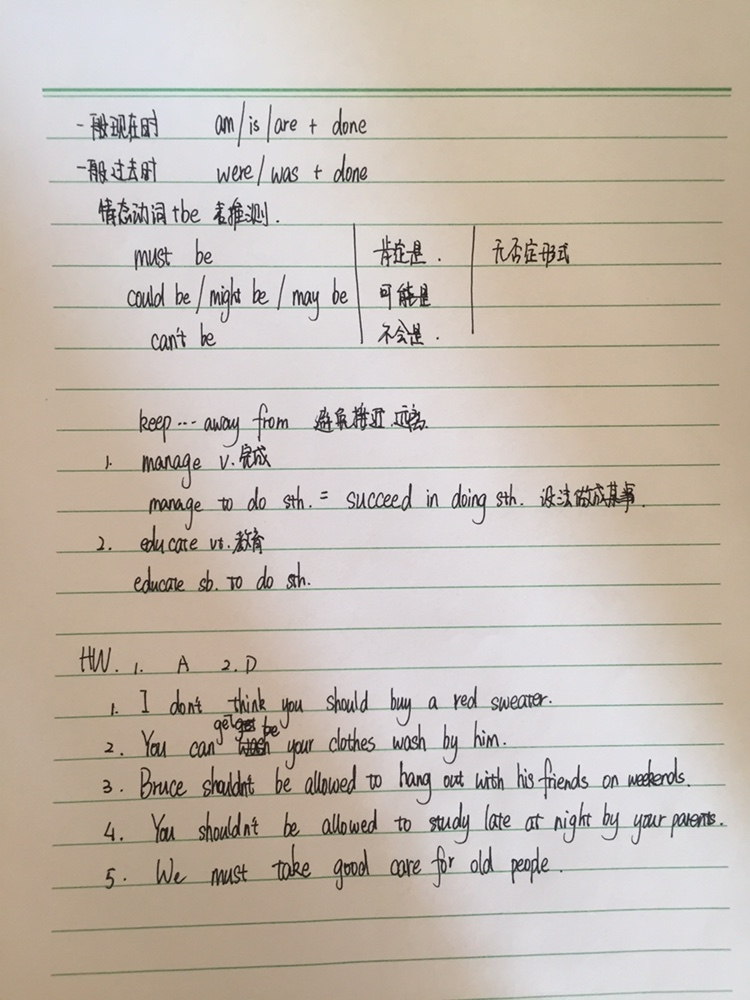 一般现在时 am/is/are + done
一般过去时 were/was + done
情态动词+be 表推测.
must be 肯定是. 无否定形式
could be/might be/may be 可能是
can't be 不会是.
keep … away from 避免接近.远离
1. manage v.完成
manage to do sth. = succeed in doing sth. 设法做成某事.
2. educate vt.教育
educate sb. to do sth.
HW. 1. A 2.D
1. I don't think you should buy a red sweater.
get be
2. You can your clothes wash by him.
3. Bruce shouldn't be allowed to hang out with his friends on weekends.
4. You shouldn't be allowed to study late at night by your parents.
5. We must take good care for old people.